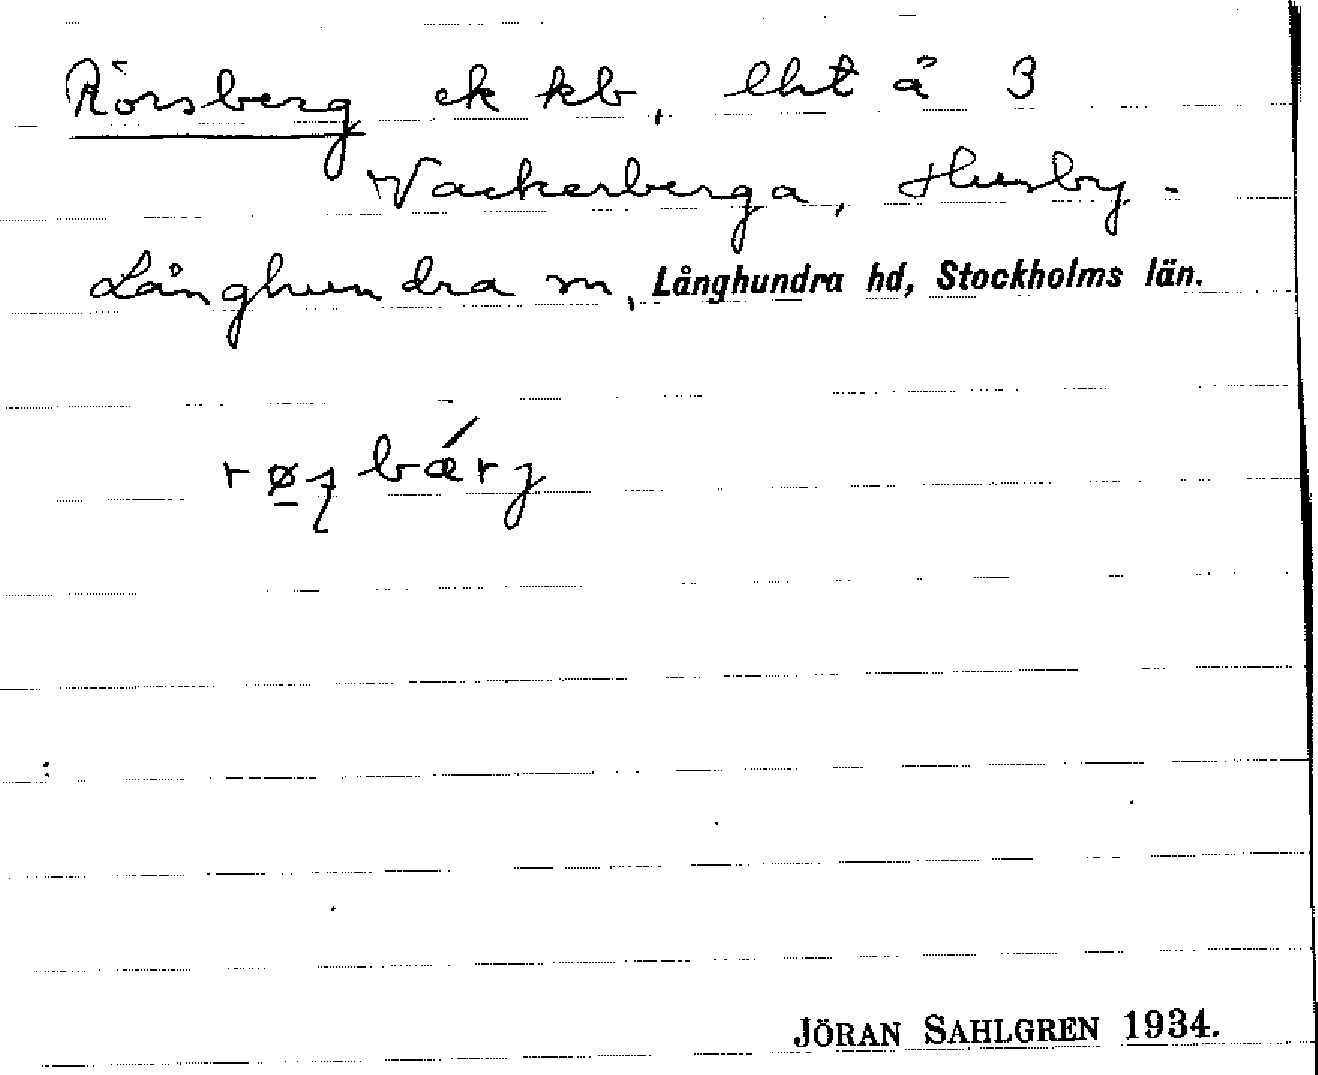 Rörsberg ek kb, lht å 3
Vackerberga, Husby-
Långhundra sn, Långhundra hd, Stockholms län.
JÖRAN SAHLGREN 1934.